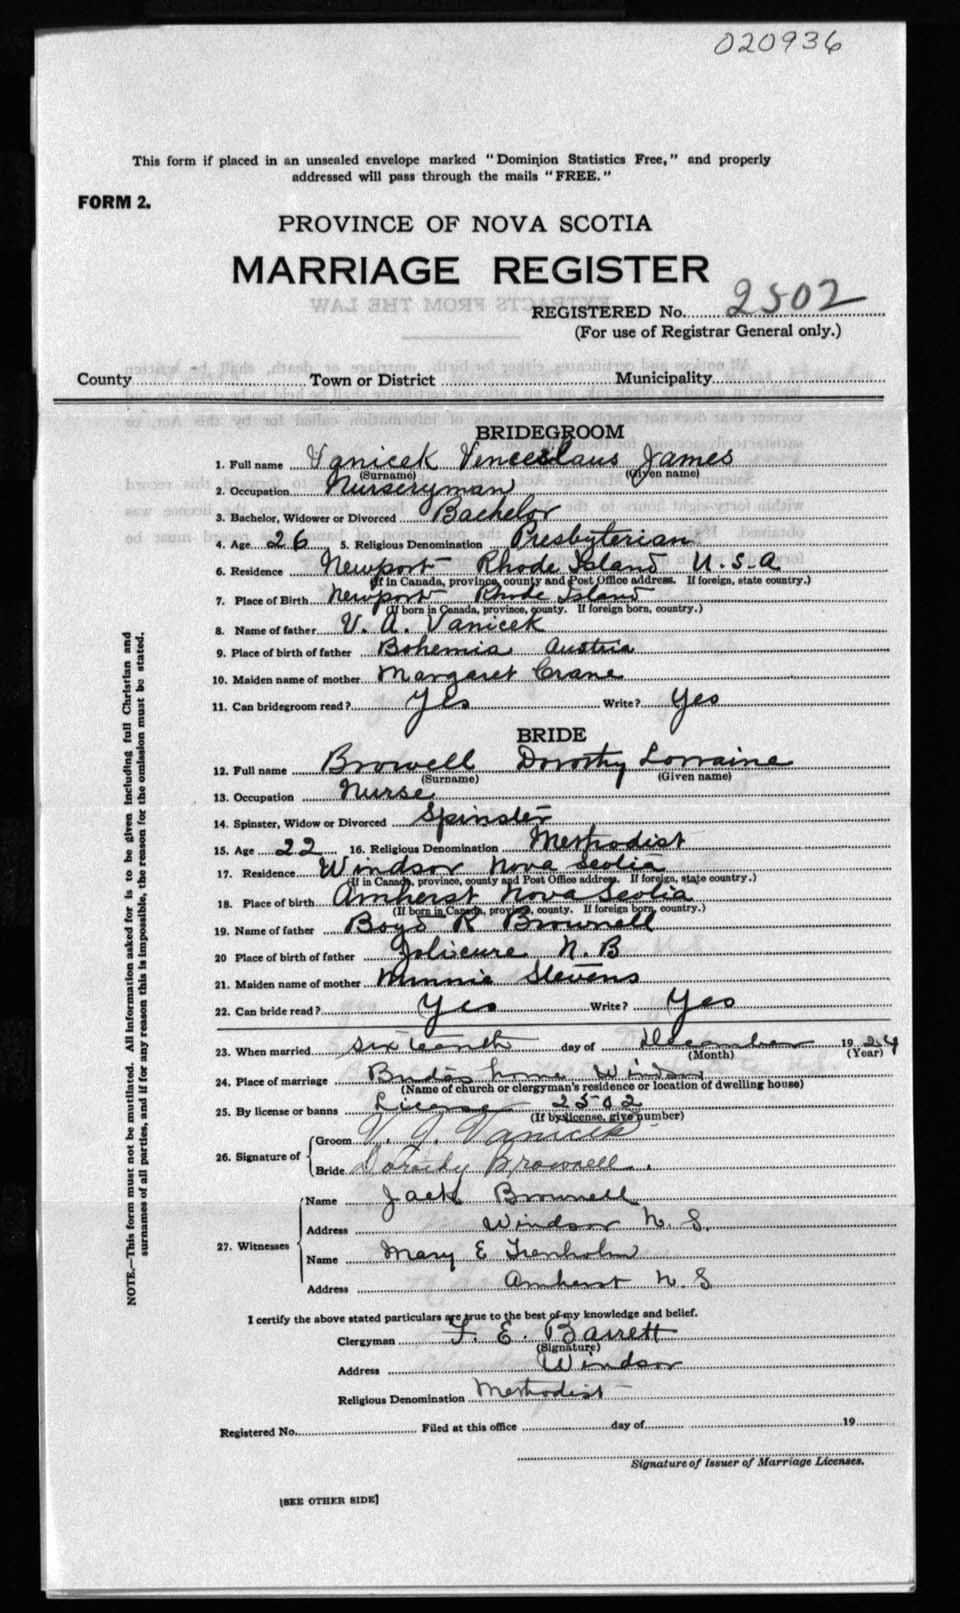 020936
This form if placed in an unsealed envelope marked "Dominion Statistics Free," and properly
addressed will pass through the mails "FREE."
FORM 2.
PROVINCE OF NOVA SCOTIA
MARRIAGE REGISTER
REGISTERED No. 2502
(For use of Registrar General only.)
County Town or District Municipality
BRIDEGROOM
1. Full name Vanicek Venceslaus James
(Surname) (Given name)
2. Occupation Nurseryman
3. Bachelor, Widower or Divorced Bachelor
4. Age 26 5. Religious Denomination Presbyterian
6. Residence Newport Rhode Island U.S.A
(If in Canada, province, county and Post Office address. If foreign, state country.)
7. Place of Birth Newport Rhode Island
(If born in Canada, province, county. If foreign born, country.)
8. Name of father V. A. Vanicek
9. Place of birth of father Bohemia Austria
10. Maiden name of mother Margaret Crane
11. Can bridegroom read? Yes Write? Yes
BRIDE
12. Full name Browell Dorothy Lorraine
(Surname) (Given name)
13. Occupation Nurse
14. Spinster, Widow or Divorced Spinster
15. Age 22 16. Religious Denomination Methodist
17. Residence Windsor Nova Scotia
(If in Canada, province, county and Post Office address. If foreign, state country.)
18. Place of birth Amherst Nova Scotia
(If born in Canada, province, county. If foreign born, country.)
19. Name of father Boyd R Brownell
20 Place of birth of father Jolicure N.B
21. Maiden name of mother Minnie Stevens
22. Can bride read? Yes Write? Yes
23. When married sixteenth day of December 1924
(Month) (Year)
24. Place of marriage Brides home Windsor
(Name of church or clergyman's residence or location of dwelling house)
25. By license or banns License 2502
(If by license, give number)
26. Signature of Groom V. J. Vanicek
Bride Dorothy Brownell
27. Witnesses Name Jack Brownell
Address Windsor N. S.
Name Mary E Trenholm
Address Amherst N. S
I certify the above stated particulars are true to the best of my knowledge and belief.
Clergyman F. E. Barrett
(Signature)
Address Windsor
Religious Denomination Methodist
Registered No. Filed at this office day of 19
Signature of Issuer of Marriage Licenses.
[SEE OTHER SIDE]
NOTE.—This form must not be mutilated. All information asked for is to be given including full Christian and
surnames of all parties, and if for any reason this is impossible, the reason for the omission must be stated.